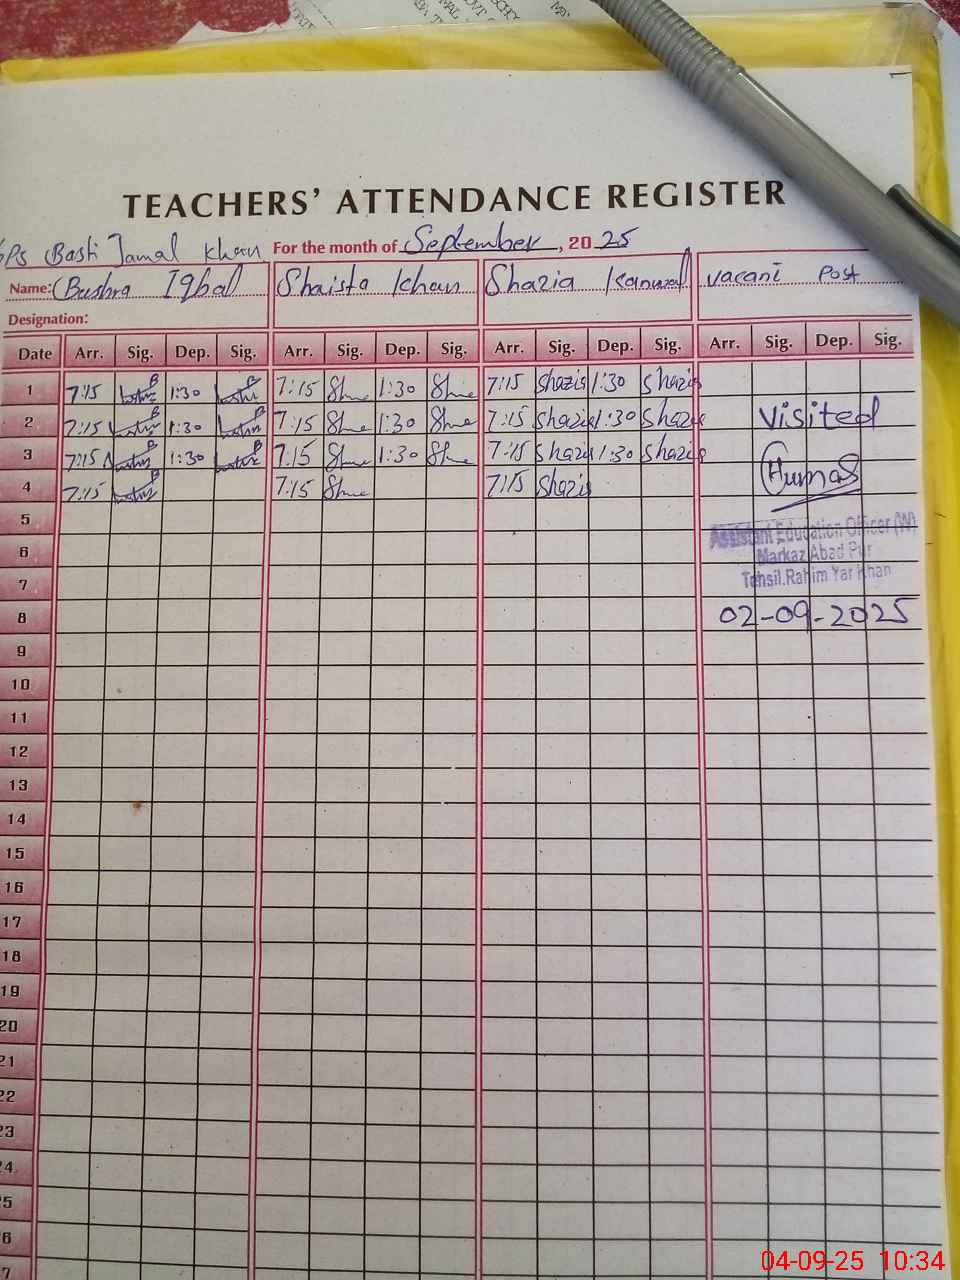 TEACHERS' ATTENDANCE REGISTER
GPS Basti Jamal Khan For the month of September, 2025
Name: Bushra Iqbal Shaista Khan Shazia Kanwal vacant Post
Designation:
Date Arr. Sig. Dep. Sig. Arr. Sig. Dep. Sig. Arr. Sig. Dep. Sig. Arr. Sig. Dep. Sig.
1 7:15 1:30 7:15 1:30 7:15 Shazia 1:30 Shazia
2 7:15 1:30 7:15 1:30 7:15 Shazia 1:30 Shazia Visited
3 7:15 1:30 7:15 1:30 7:15 Shazia 1:30 Shazia
4 7:15 7:15 7:15 Shazia Humas
5
Assistant Education Officer (W)
6
Markaz Abad Pur
7 Tehsil.Rahim Yar Khan
8 02-09-2025
9
10
11
12
13
14
15
16
17
18
19
20
21
22
23
24
5
6
7
04-09-25 10:34